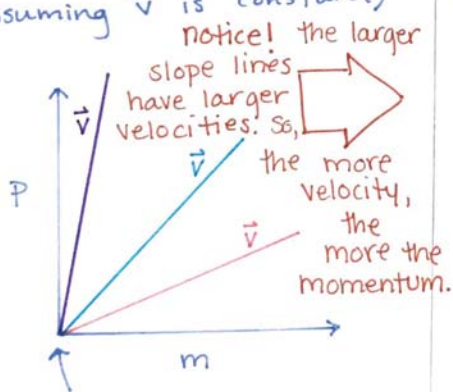 suming v is constant,
notice! the larger
slope lines
have larger
velocities. So,
the more
velocity,
the
more the
momentum.
P
v⃗
v⃗
v⃗
m